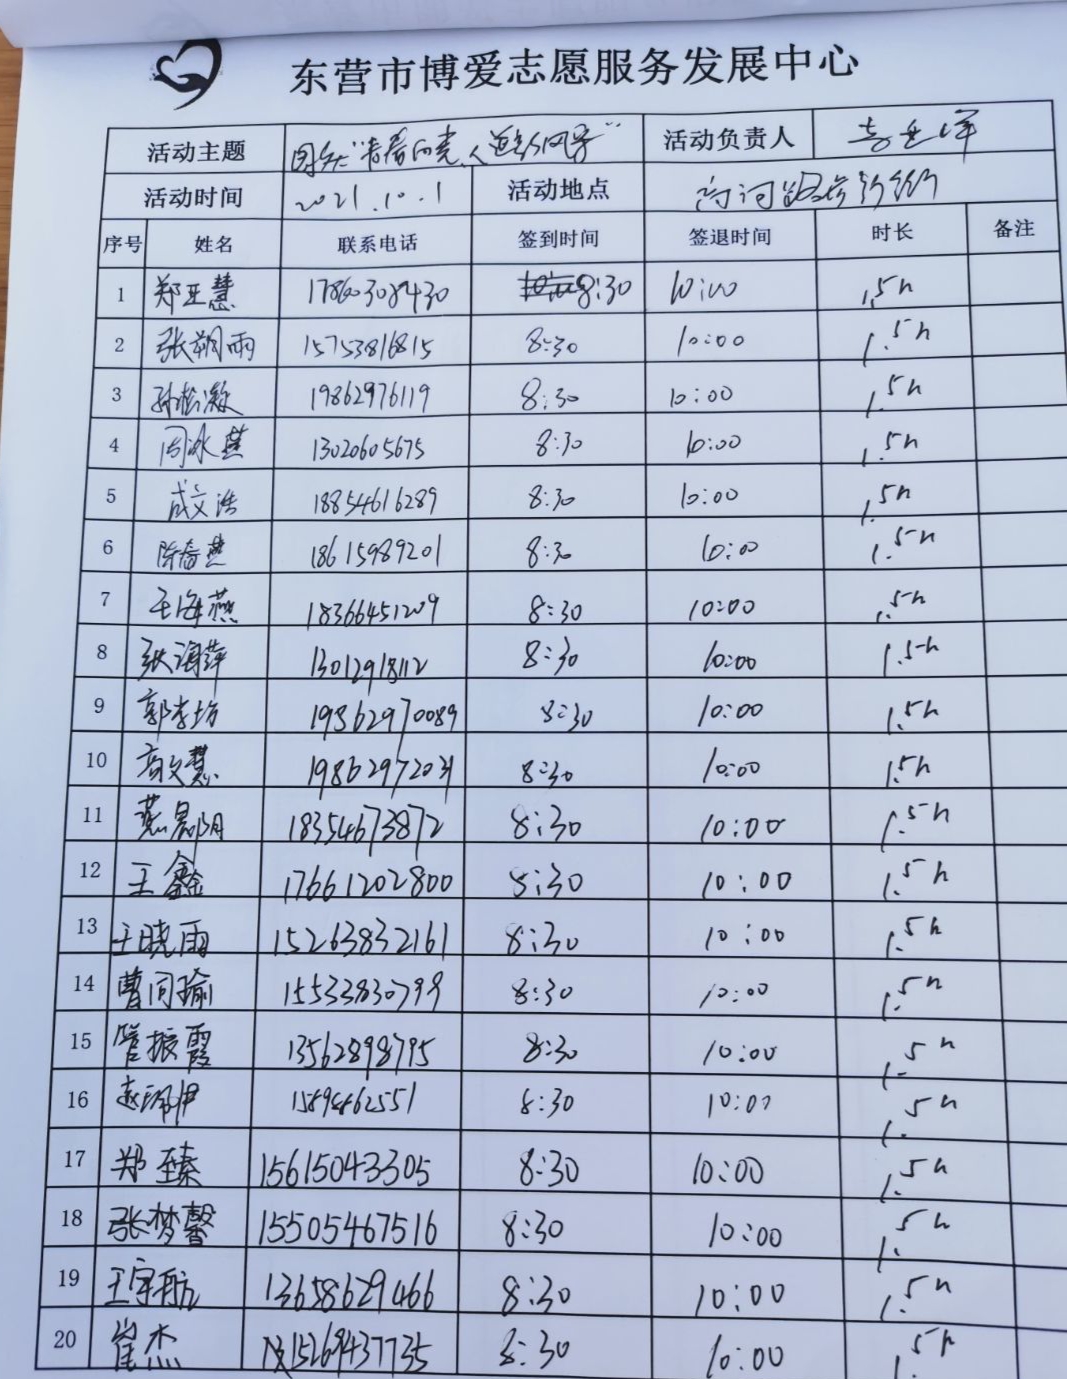 东营市博爱志愿服务发展中心
活动主题 国庆"青春向党、人道 活动负责人
活动时间 2021.10.1 活动地点
序号 姓名 联系电话 签到时间 签退时间 时长 备注
1 郑亚慧 8:30 10:00 1.5h
2 张朔雨 15753816815 8:30 10:00 1.5h
3 孙松凝 19862976119 8:30 10:00 1.5h
4 周冰莹 13020605675 8:30 10:00 1.5h
5 成文浩 18854616289 8:30 10:00 1.5h
6 陈春燕 18615989201 8:30 10:00 1.5h
7 王海燕 18366451209 8:30 10:00 1.5h
8 张海萍 13012918112 8:30 10:00 1.5h
9 郭李坊 19862970089 8:30 10:00 1.5h
10 高文慧 8:30 10:00 1.5h
11 18354673872 8:30 10:00 1.5h
12 王鑫 17661202800 8:30 10:00 1.5h
13 王晓雨 15263832161 8:30 10:00 1.5h
14 曹同瑜 15533830799 8:30 10:00 1.5h
15 管振霞 13562898795 8:30 10:00 1.5h
16 8:30 10:00 1.5h
17 郑臻 15615043305 8:30 10:00 1.5h
18 张梦馨 15505467516 8:30 10:00 1.5h
19 王宇航 13658629466 8:30 10:00 1.5h
20 崔杰 15269437735 8:30 10:00 1.5h